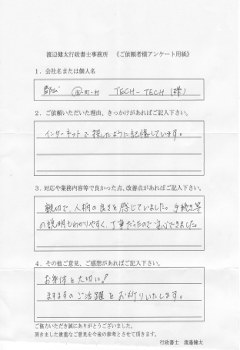 渡辺健太行政書士事務所 《ご依頼者様アンケート用紙》
1．会社名または個人名
TECH-TECH (様)
2．ご依頼いただいた理由、きっかけがあればご記入下さい。
インターネットで探したように記憶しています。
3．対応や業務内容等で良かった点、改善点があればご記入下さい。
親切で、人柄の良さを感じていました。手続き等
の説明もわかりやすく、丁寧だったので安心できました。
4．その他ご意見、ご感想があればご記入下さい。
お身体を大切に!
ますますのご活躍をお祈りいたします。
ご協力いただき誠にありがとうございました。
頂きました貴重なご意見を今後の参考とさせて頂きます。
行政書士 渡邉健太